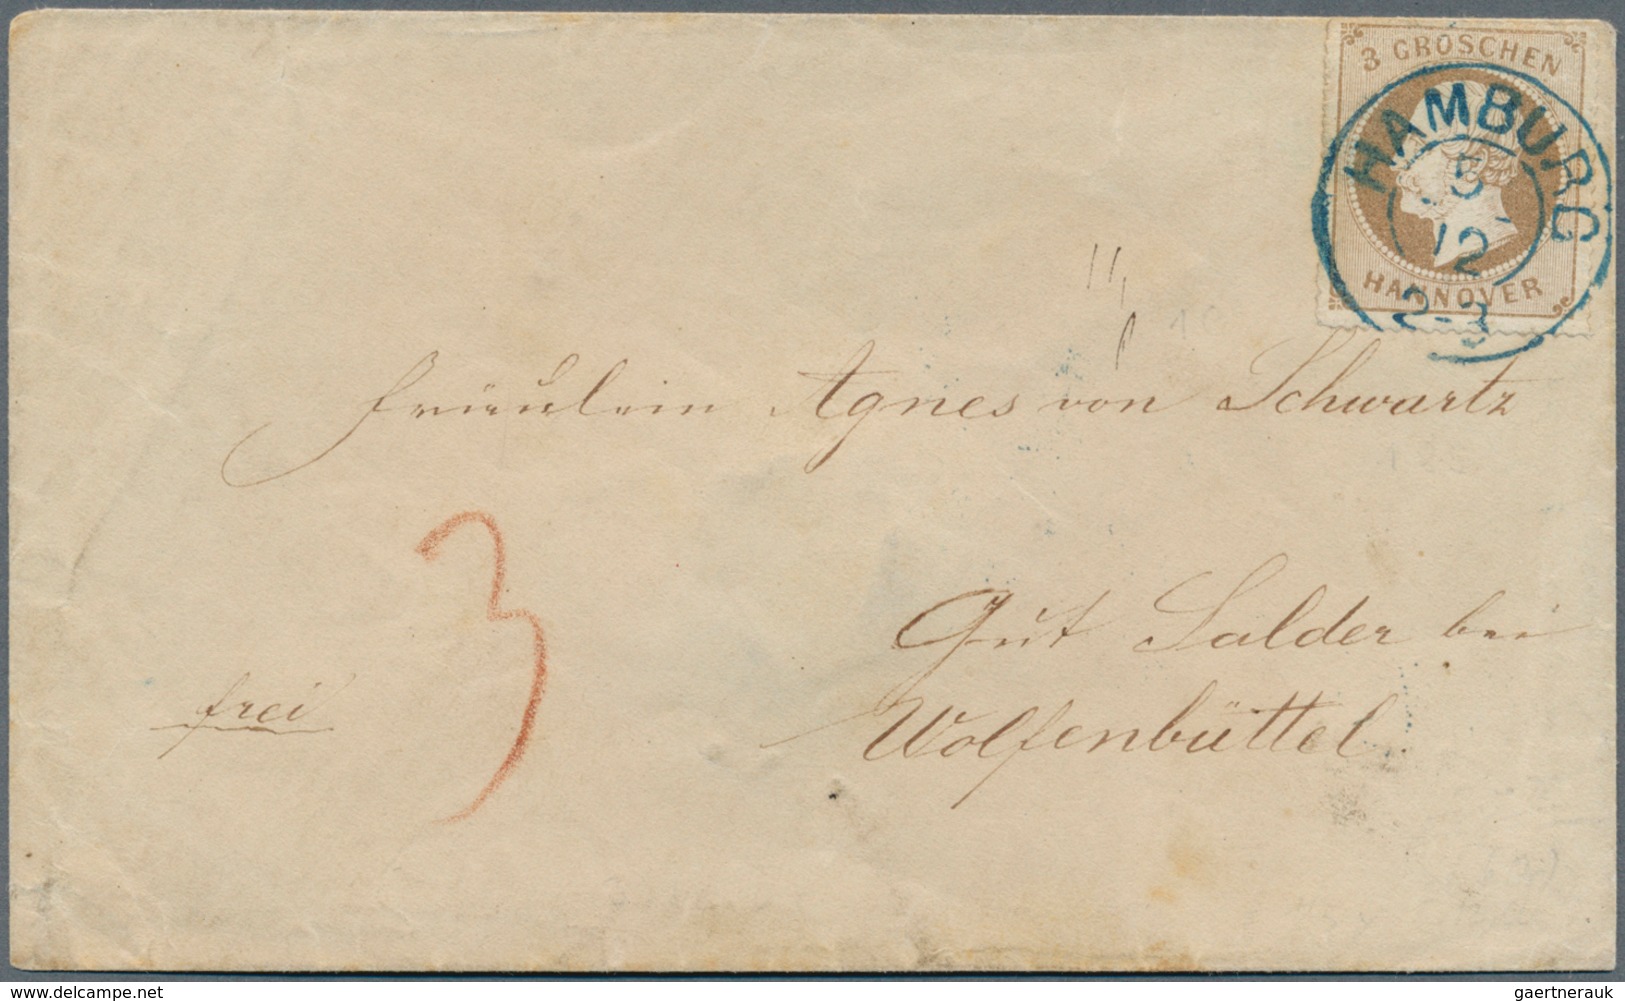 3 GROSCHEN
HAMBURG
5
12
2-3
HANNOVER
Fräulein Agnes von Schwartz
3
Gut Salder bei
frei
Wolfenbüttel
www.delcampe.net
gaertnerauk